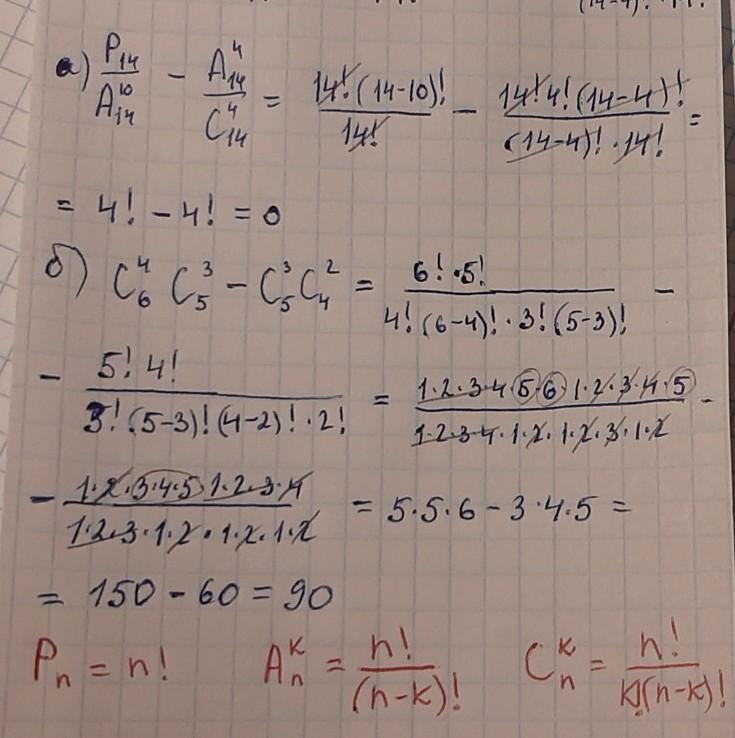 (14-4)! · 14!
а) P₁₄/A₁₄¹⁰ - A₁₄⁴/C₁₄⁴ = 14!·(14-10)!/14! - 14! 4! (14-4)!/(14-4)! · 14! =
= 4! - 4! = 0
б) C₆⁴ C₅³ - C₅³ C₄² = 6! · 5!/4! · (6-4)! · 3! (5-3)! -
- 5! 4!/3! · (5-3)! (4-2)! · 2! = 1·2·3·4·5·6·1·2·3·4·5/1·2·3·4·1·2·1·2·3·1·2 -
- 1·2·3·4·5·1·2·3·4/1·2·3·1·2·1·2·1·2 = 5·5·6 - 3·4·5 =
= 150 - 60 = 90
Pₙ = n! Aₙᵏ = n!/(n-k)! Cₙᵏ = n!/k!(n-k)!